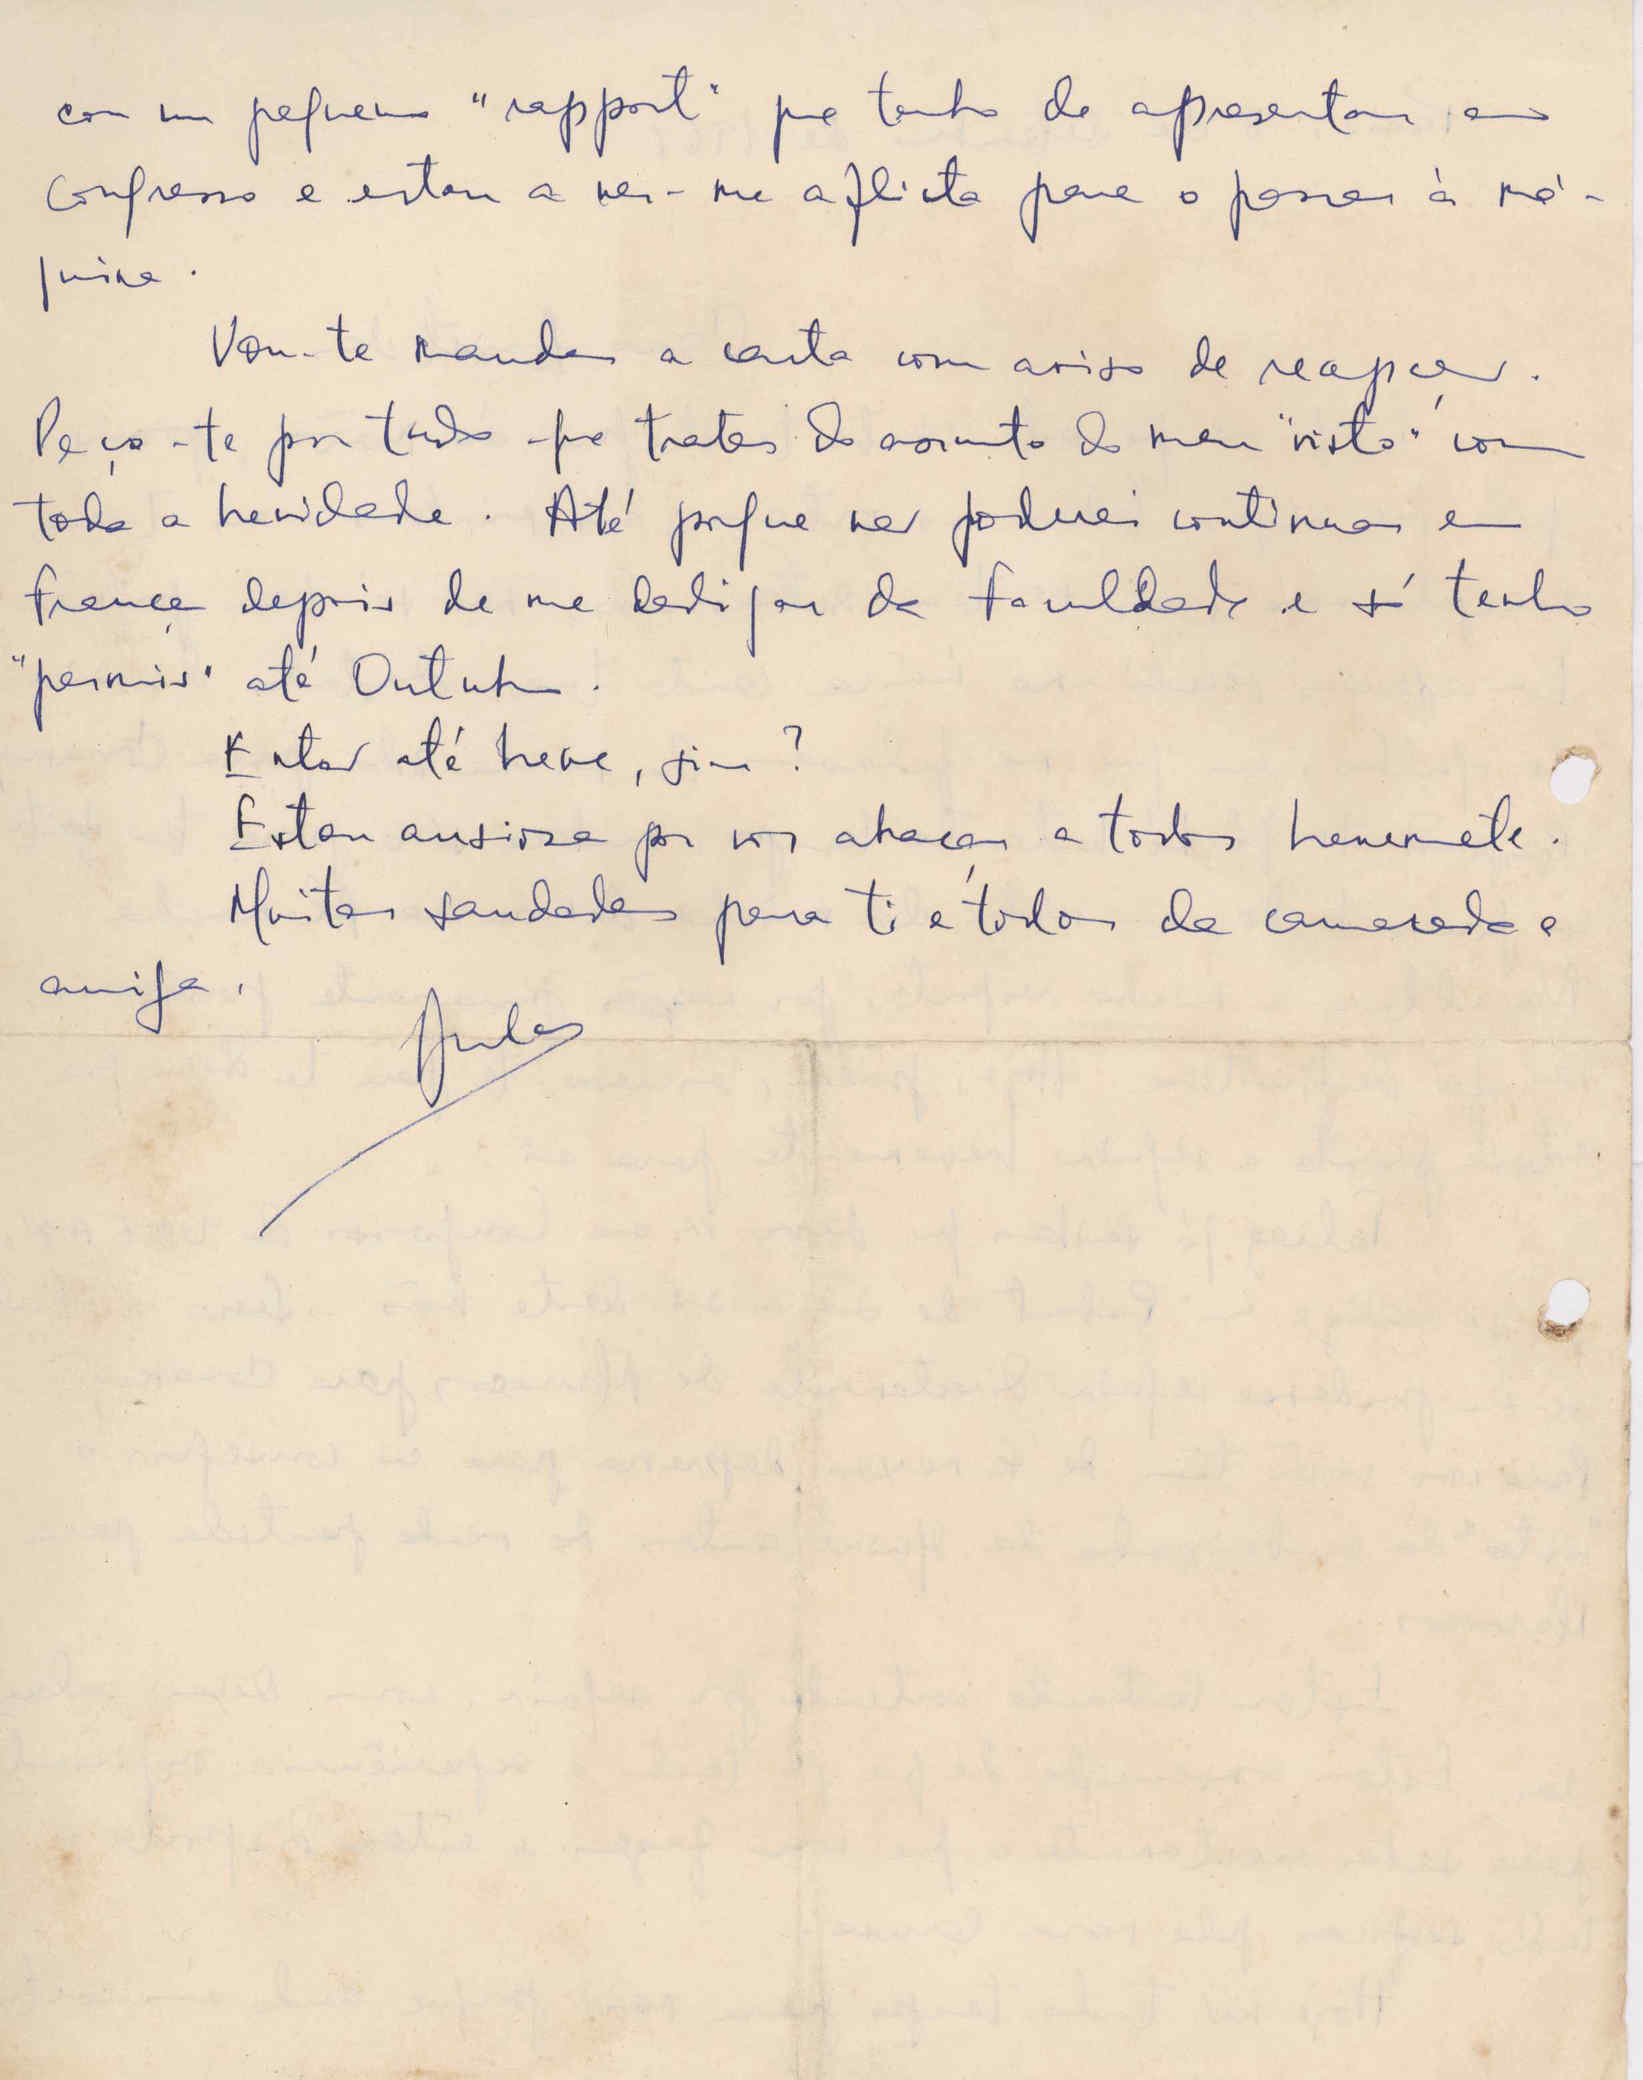 com um pequeno "rapport" que tenho de apresentar ao
Congresso e estou a ver-me aflicta para o passar à má-
quina.
Vou-te mandar a carta com aviso de recepção.
Peço-te por tudo que trates do assunto do meu "visto" com
toda a brevidade. Até porque não poderei continuar em
França depois de me desligar da Faculdade e só tenho
"permis" até Outubro.
Então até breve, sim?
Estou ansiosa por vos abraçar a todos brevemente.
Muitas saudades para ti e todos da camarada e
amiga,